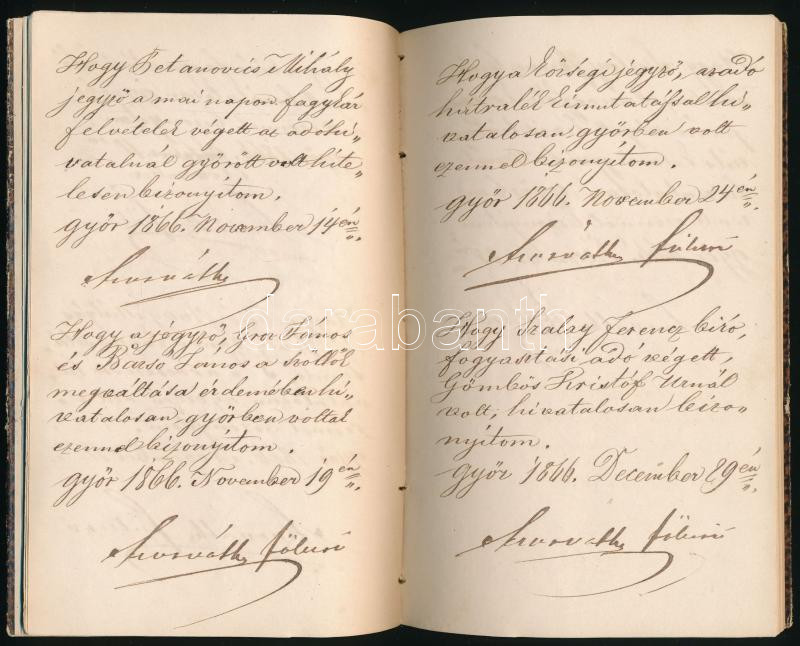 Hogy Betanovics Mihály
jegyző a mai napon fagykár
felvételek végett az adóhi„
vatalnál győrött volt hite„
lesen bizonyítom.
győr 1866. November 14én„.
Horváth
Hogy a jégyző, Gros János
és Barsó János a szőllők
megváltása érdemében hi„
vatalosan győrben voltak
ezennel bizonyítom.
győr 1866. November 19én„.
Horváth főbiró
Hogy a községi jégyző, azadó
hátralék kimutatással hi„
vatalosan győrben volt
ezennel bizonyítom.
győr 1866. November 24én„.
Horváth főbiró
Hogy Szalay Ferencz biró,
fogyasztási adó végett,
Gömbös Kristóf Urnál
volt, hivatalosan bizo„
nyítom.
Győr 1866. December 29én„.
Horváth főbiró
darabanth.com